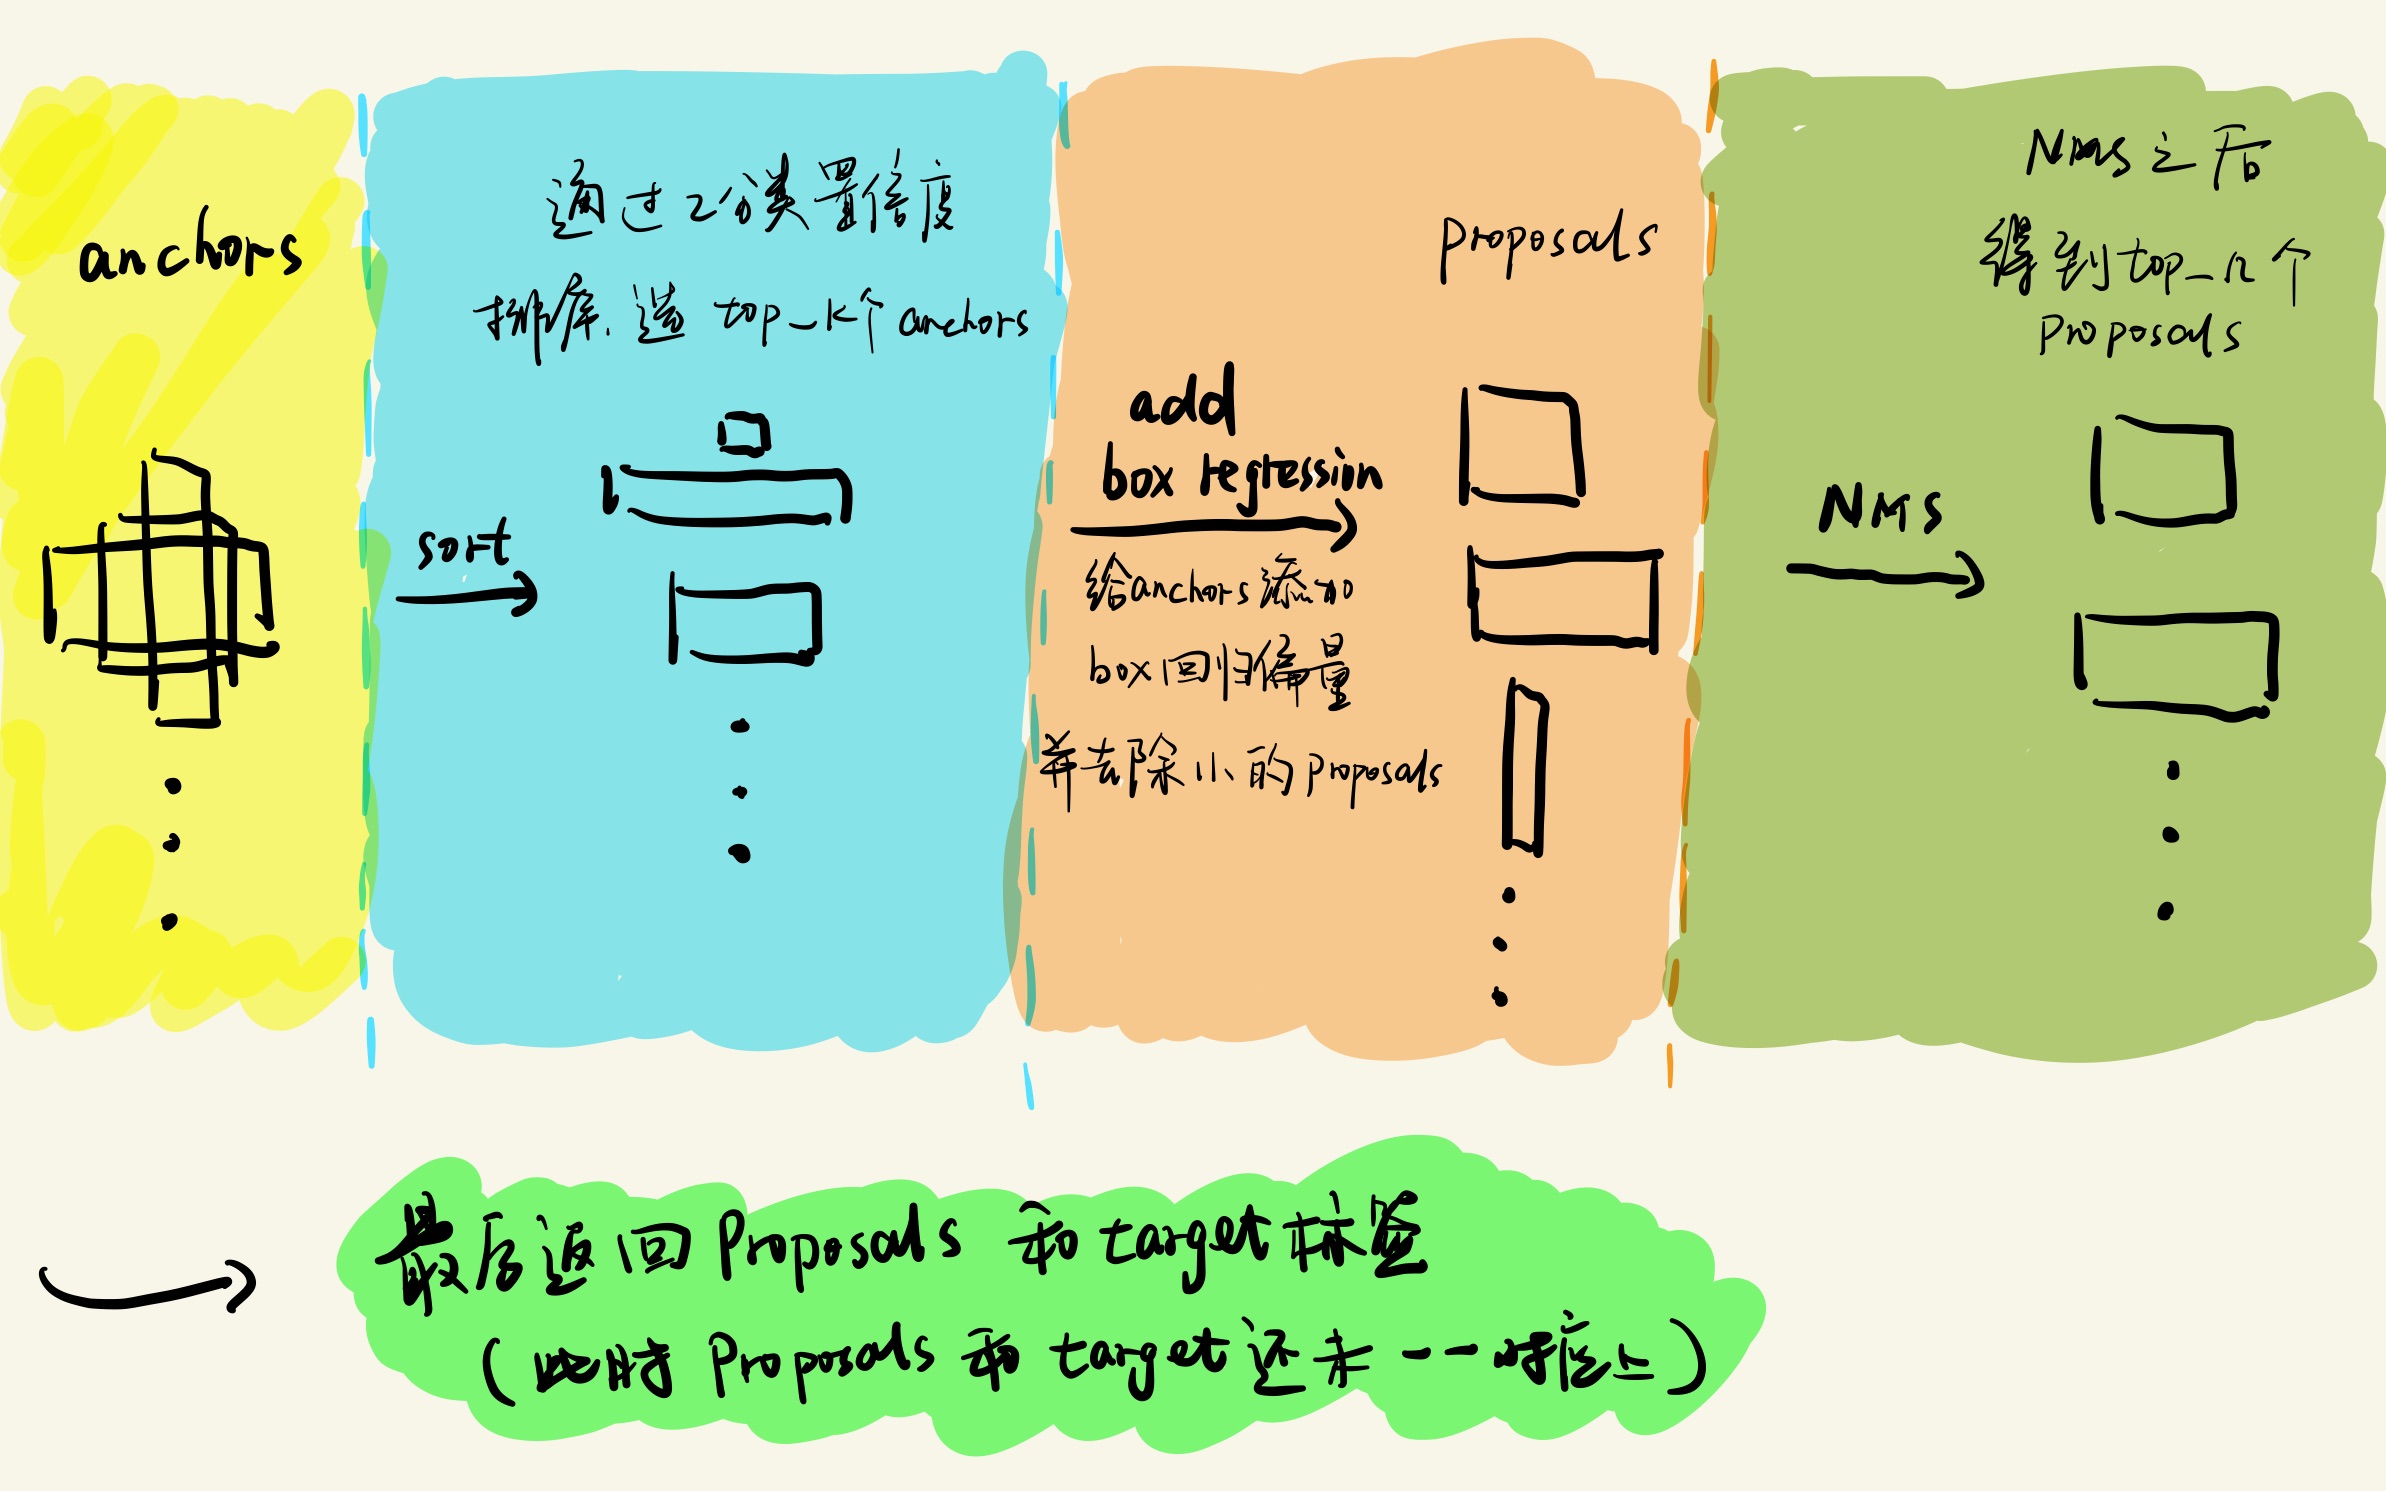 anchors
通过2分类置信度
排序.选 top_k个 anchors
sort
add
box regression
给anchors添加
box回归偏置量
并去除小的proposals
proposals
NMS
NMS之后
得到top_n个
proposals
最后返回 Proposals 和 target 标签
(此时 Proposals 和 target 还未一一对应上)